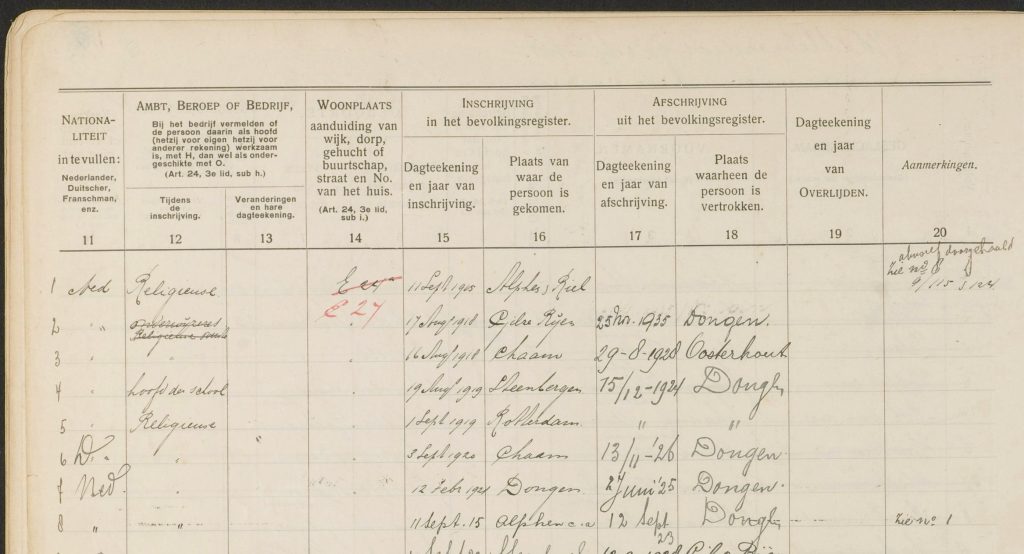 NATIONA-
LITEIT
in te vullen:
Nederlander,
Duitscher,
Franschman,
enz.
11
AMBT, BEROEP OF BEDRIJF,
Bij het bedrijf vermelden of
de persoon daarin als hoofd
(hetzij voor eigen hetzij voor
anderer rekening) werkzaam
is, met H, dan wel als onder-
geschikte met O.
(Art. 24, 3e lid, sub h.)
Tijdens
de
inschrijving.
12
Veranderingen
en hare
dagteekening.
13
WOONPLAATS
aanduiding van
wijk, dorp,
gehucht of
buurtschap,
straat en No.
van het huis.
(Art. 24, 3e lid,
sub i.)
14
INSCHRIJVING
in het bevolkingsregister.
Dagteekening
en jaar van
inschrijving.
15
Plaats van
waar de
persoon is
gekomen.
16
AFSCHRIJVING
uit het bevolkingsregister.
Dagteekening
en jaar van
afschrijving.
17
Plaats
waarheen de
persoon is
vertrokken.
18
Dagteekening
en jaar
van
OVERLIJDEN.
19
Aanmerkingen.
20
abusief doorgehaald
Zie no 8
1 Ned Religieuse 11 Sept 1915 Alphen & Riel
E 27
2 " " 17 Augt 1918 Gilze Rijen 25 Nov. 1935 Dongen.
3 " 16 Augt 1918 Chaam 29-8-1928 Oosterhout
4 " hoofd der school 19 Augt 1919 Steenbergen 15/12-1924 Dongen
5 " Religieuse 1 Sept 1919 Rotterdam " "
6 D. " " 3 Sept 1920 Chaam 13/11-'26 Dongen
7 Ned. " 12 Febr 1921 Dongen 27 Juni '25 Dongen.
8 " " 11 Sept. 15 Alphen c.a 12 Sept 23 Dongen zie no 1